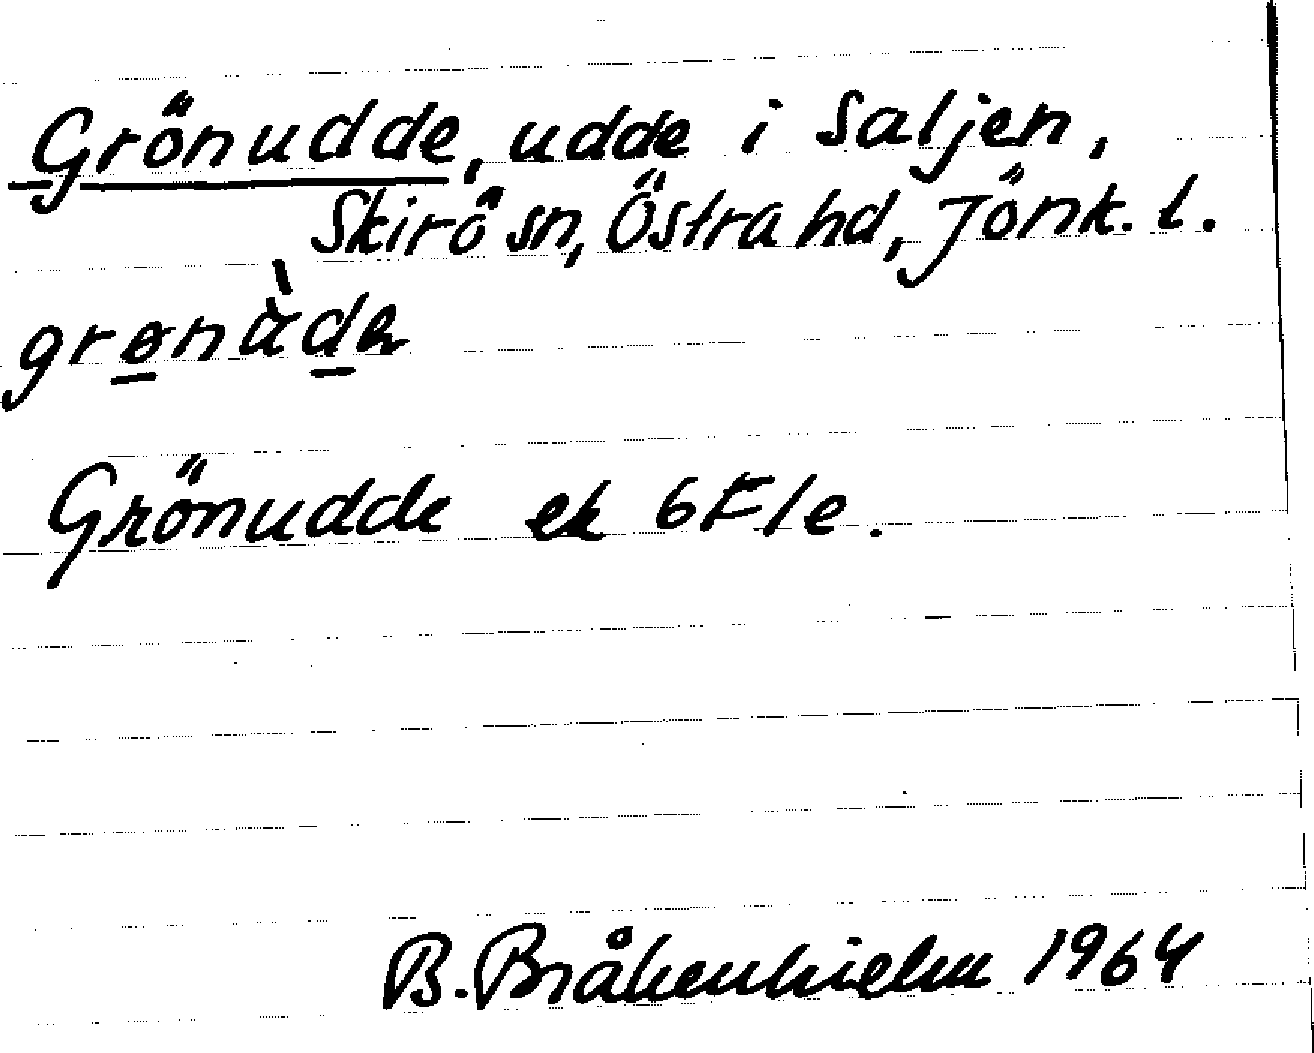 Grönudde, udde i Saljen,
Skirö sn, Östra hd, Jönk. l.
grønàde
Grönudde ek 6F1e.
B. Bråkenhielm 1964